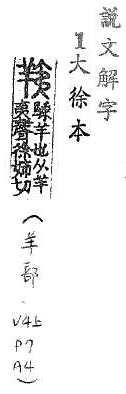 說文解字
1大徐本
羠 騬羊也从羊
夷聲徐姊切
（羊部、V4上 P7 A4）